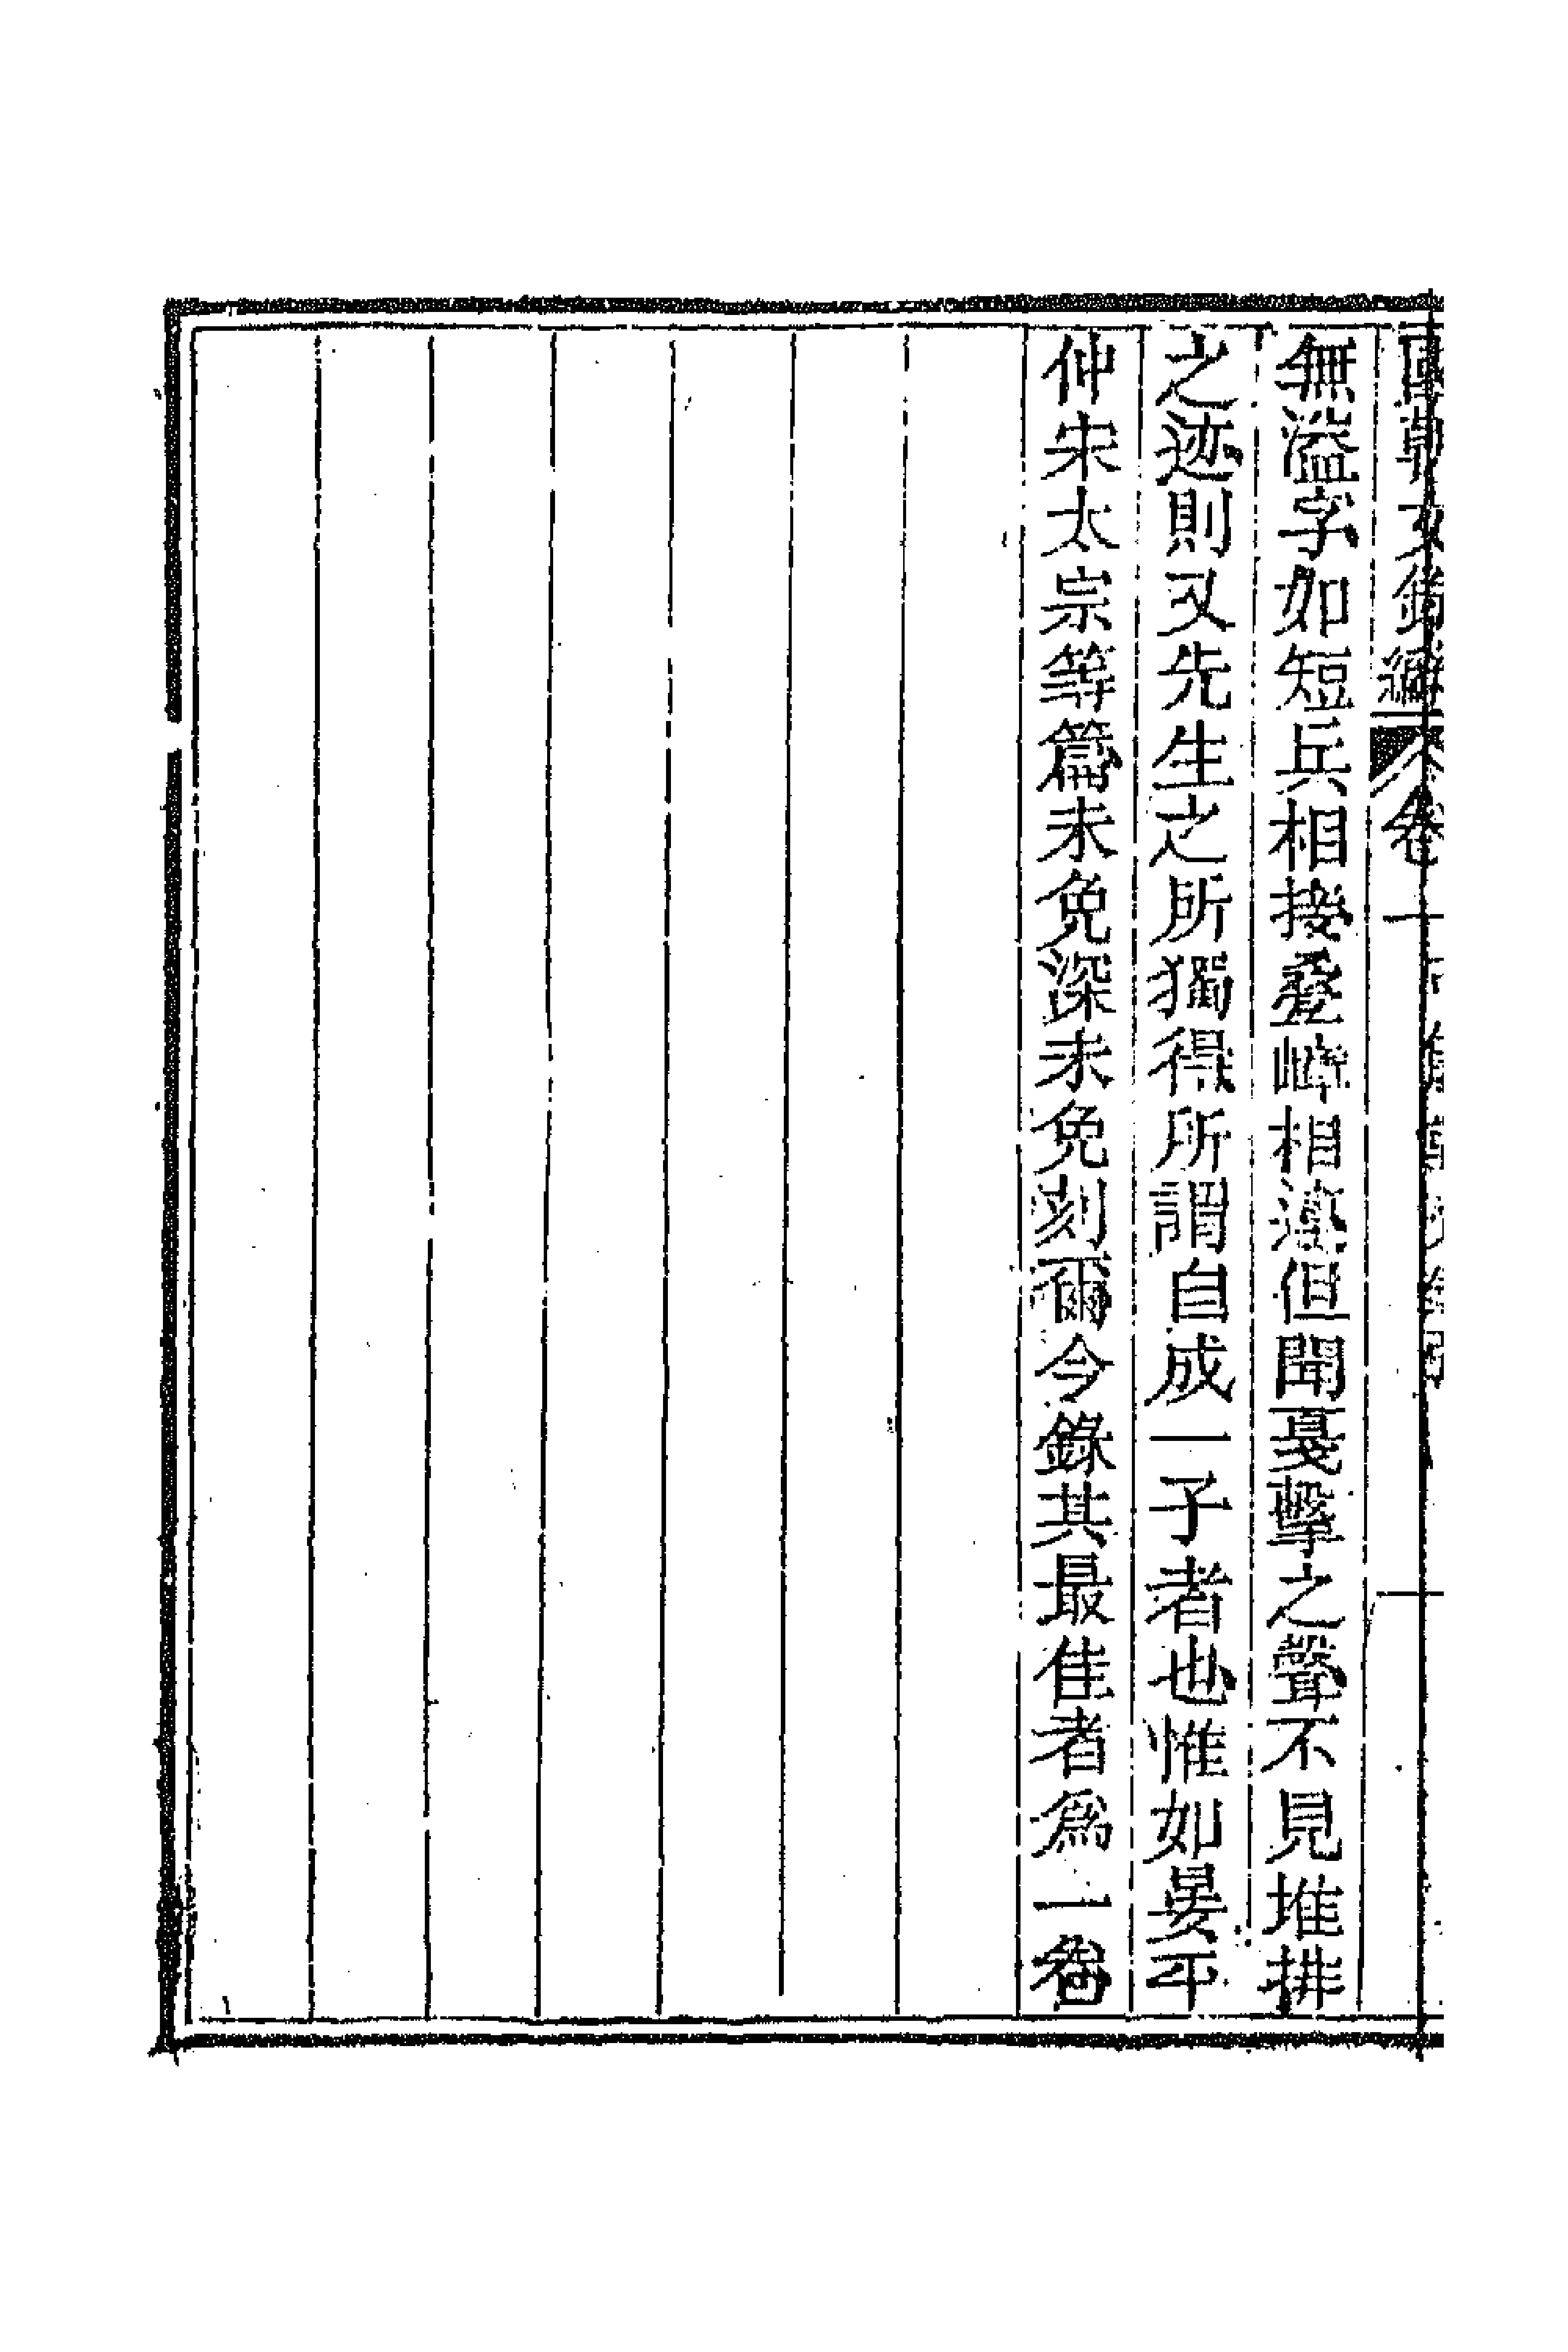 國朝文錄續編 卷一
無溢字如短兵相接疊嶂相湊但聞戛擊之聲不見堆排
之迹則又先生之所獨得所謂自成一子者也惟如晏平
仲宋太宗等篇未免深未免刻爾今錄其最佳者爲一卷